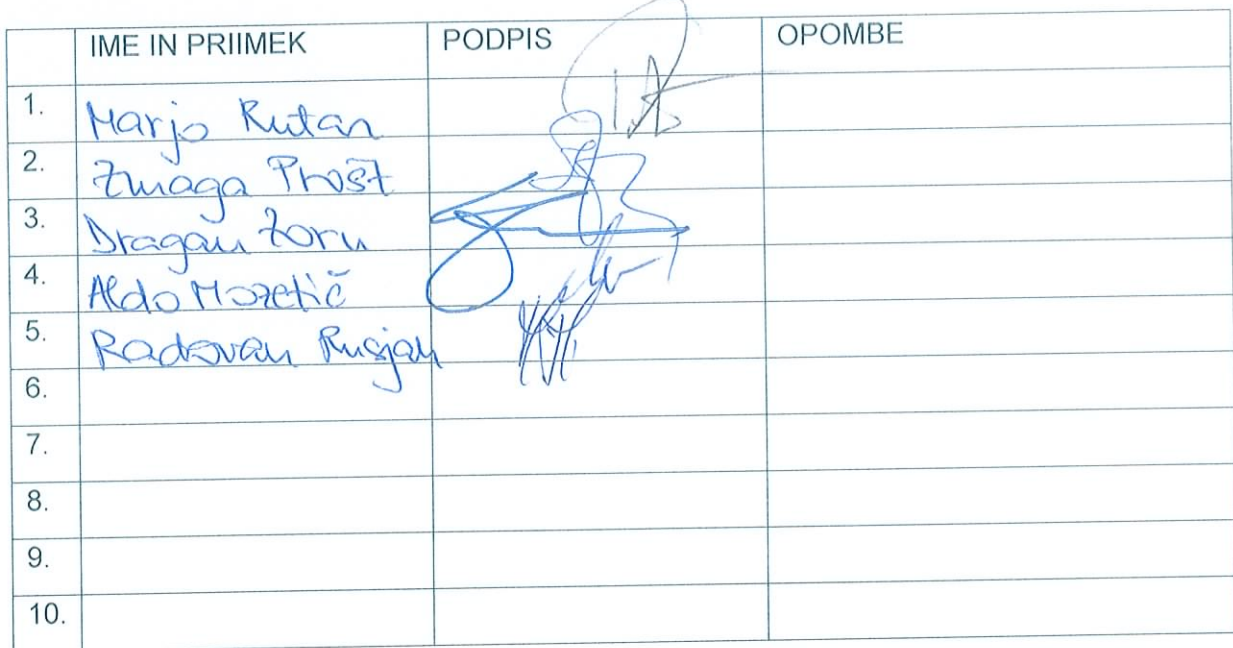 IME IN PRIIMEK PODPIS OPOMBE
1. Marjo Rutar
2. Zmaga Prošt
3. Dragan
4. Aldo Mozetič
5. Radovan Rusjan
6.
7.
8.
9.
10.